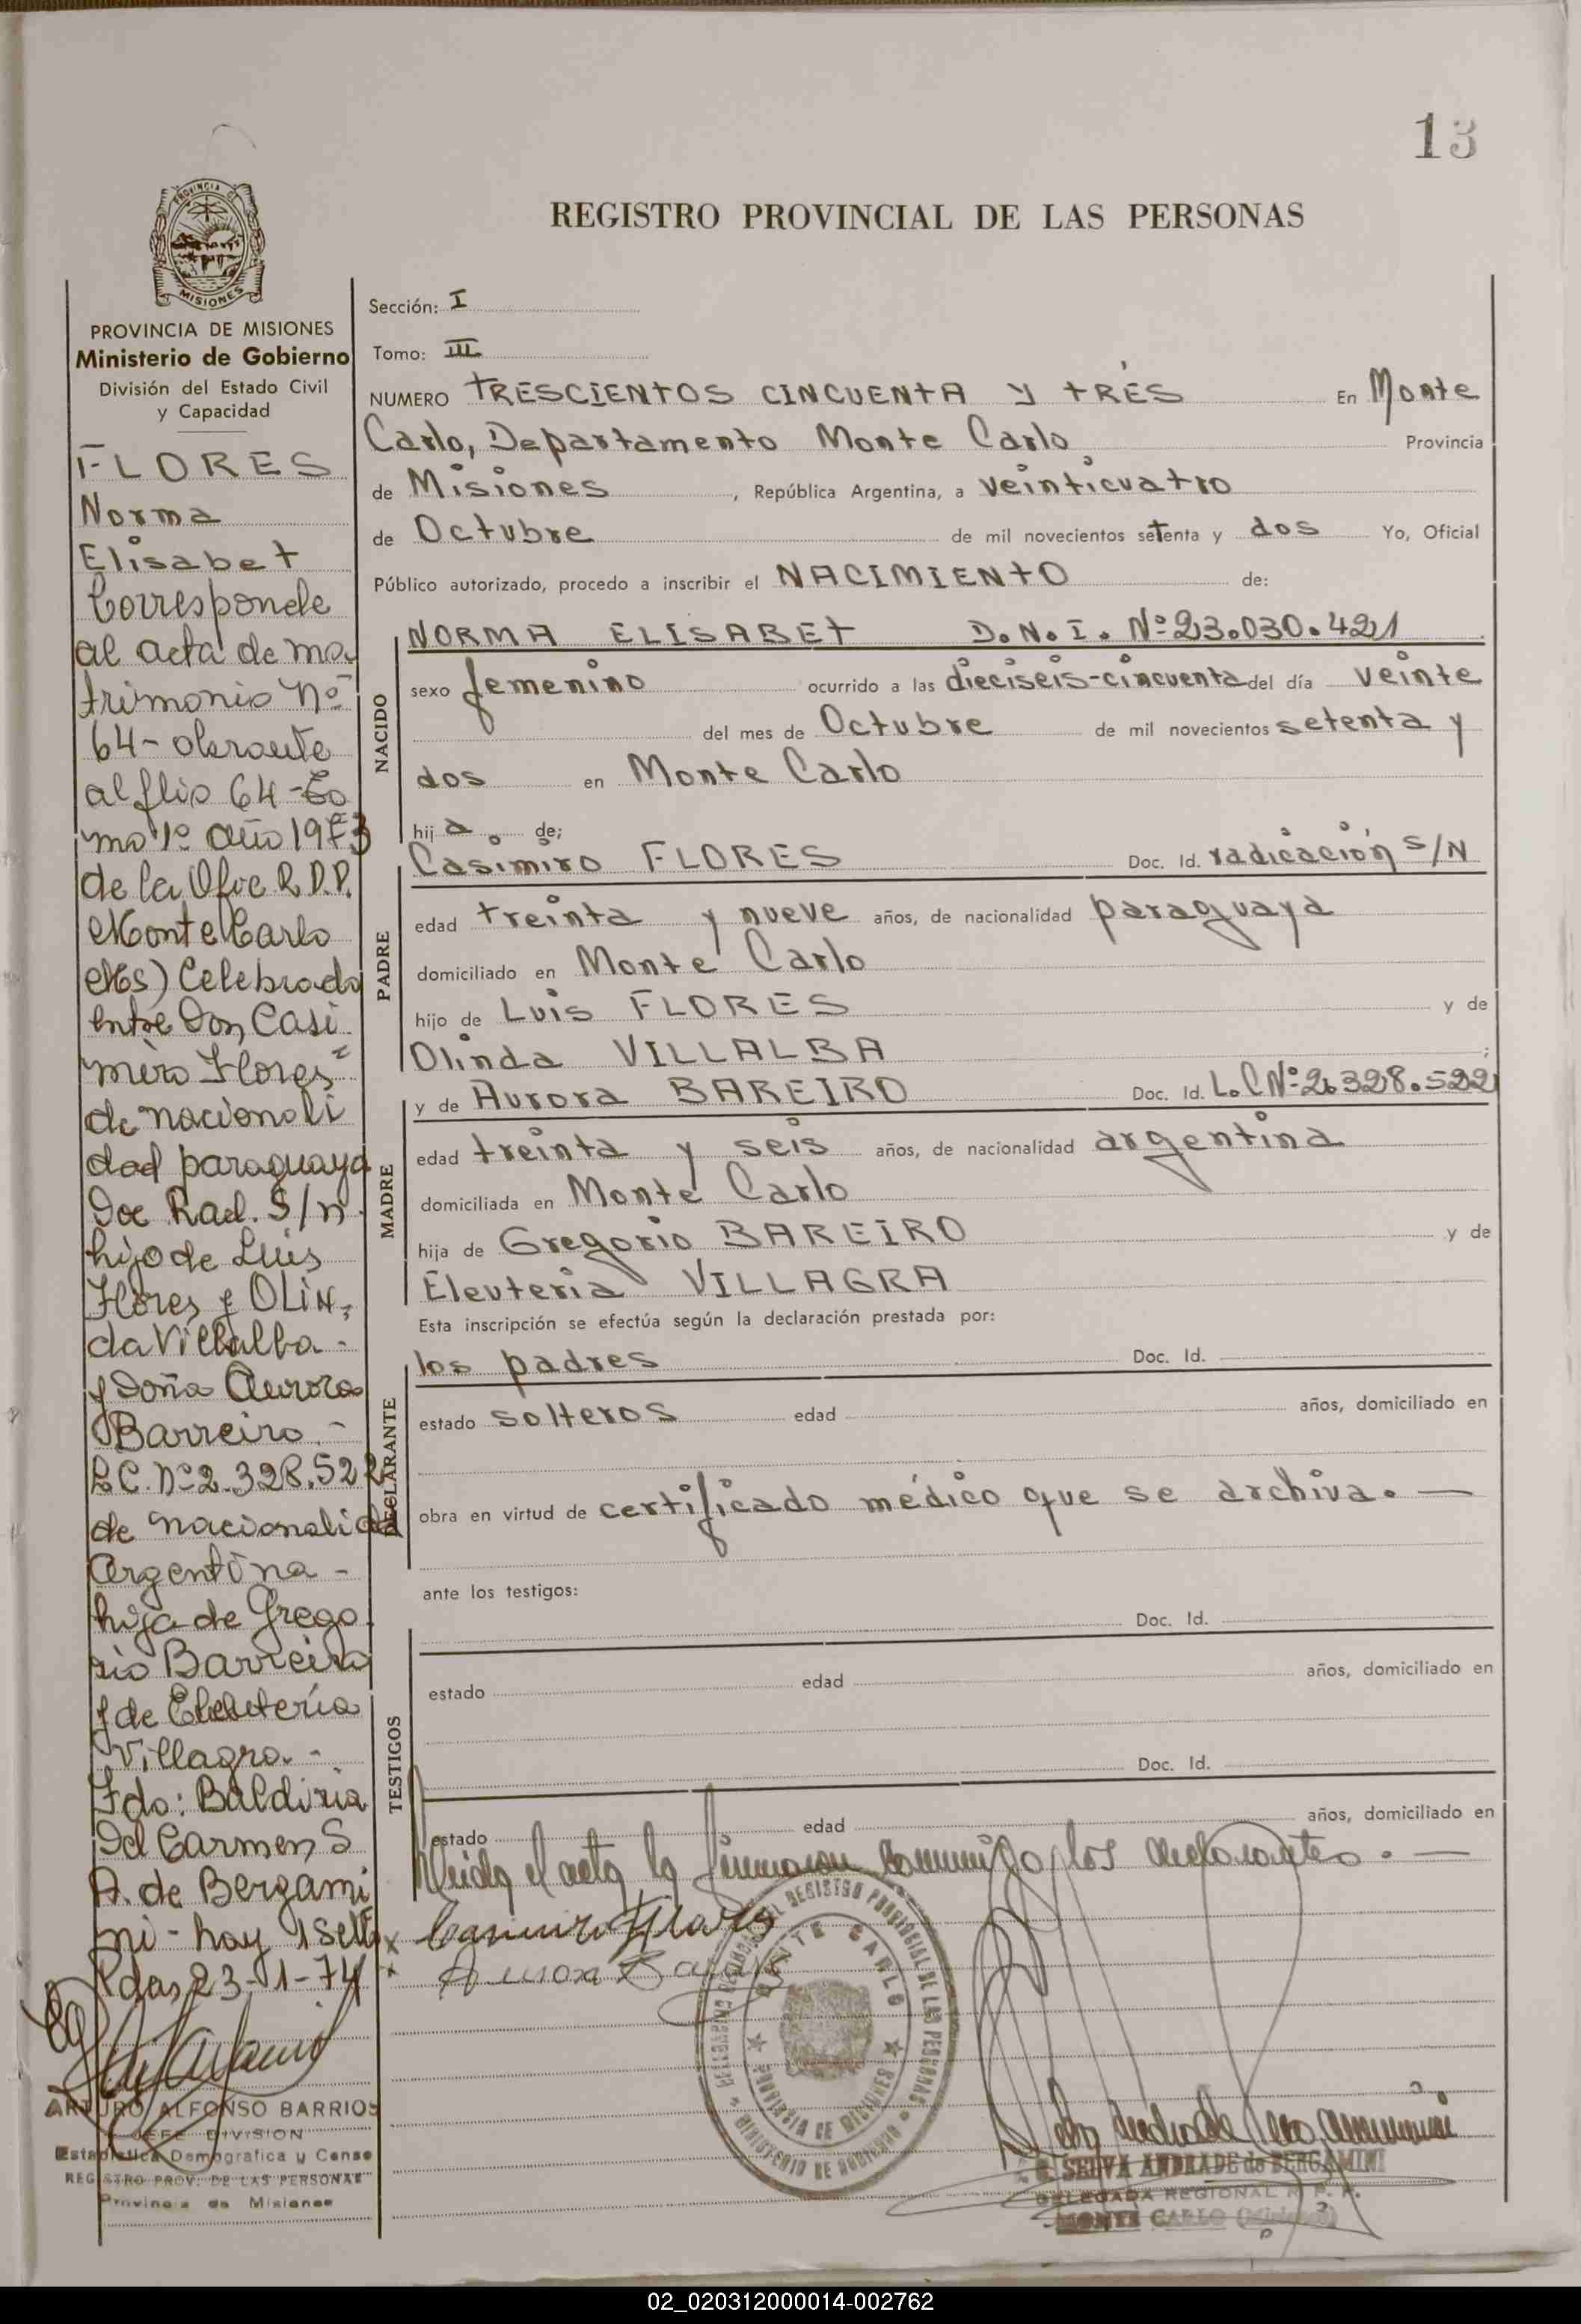 13
REGISTRO PROVINCIAL DE LAS PERSONAS
PROVINCIA DE
MISIONES
PROVINCIA DE MISIONES
Ministerio de Gobierno
División del Estado Civil
y Capacidad
FLORES
Norma
Elisabet
Corresponde
al acta de ma
trimonio Nº
64- obrante
al flio 64-To
mo 1º año 1973
de la Ofic R.P.P.
Monte Carlo
(Ms) Celebrado
entre Don Casi
miro Flores =
de nacionali
dad paraguaya
Doc Rad. S/n
hijo de Luis
Flores y OLIN,
da Villalba -
y Doña Aurora
Barreiro. -
L.C. Nº 2.328.522
de nacionalidad
Argentina -
hija de Grego
rio Barreiro
y de Eleuteria
Villagra. -
Fdo: Baldiria
Del Carmen S
A. de Bergami
ni - hay 1 sello
Pdas 23-1-74
ARTURO ALFONSO BARRIOS
JEFE DIVISION
Estadistica Demografica y Censo
REGISTRO PROV. DE LAS PERSONAS
Provincia de Misiones
Sección: I
Tomo: III
NUMERO TRESCIENTOS CINCUENTA Y TRÉS En Monte
Carlo, Departamento Monte Carlo Provincia
de Misiones, República Argentina, a veinticuatro
de Octubre de mil novecientos setenta y dos Yo, Oficial
Público autorizado, procedo a inscribir el NACIMIENTO de:
NACIDO
NORMA ELISABET D.N.I. Nº 23.030.421
sexo femenino ocurrido a las dieciseis-cincuenta del día veinte
del mes de Octubre de mil novecientos setenta y
dos en Monte Carlo
hij a de;
PADRE
Casimiro FLORES Doc. Id. radicación S/N
edad treinta y nueve años, de nacionalidad paraguaya
domiciliado en Monte Carlo
hijo de Luis FLORES y de
Olinda VILLALBA ;
MADRE
y de Aurora BAREIRO Doc. Id. L.C Nº 2.328.522
edad treinta y seis años, de nacionalidad argentina
domiciliada en Monte Carlo
hija de Gregorio BAREIRO y de
Eleuteria VILLAGRA
Esta inscripción se efectúa según la declaración prestada por:
DECLARANTE
los padres Doc. Id.
estado solteros edad años, domiciliado en
obra en virtud de certificado médico que se archiva. —
ante los testigos:
TESTIGOS
Doc. Id.
estado edad años, domiciliado en
Doc. Id.
estado edad años, domiciliado en
Leida el acta la firmaron conmigo los declarantes. —
x Casimiro Flores
x Aurora
MONTE CARLO
PROVINCIA DE MISIONES
REGISTRO PROVINCIAL DE LAS PERSONAS
MINISTERIO DE GOBIERNO
SELVA ANDRADE de BERGAMINI
DELEGADA REGIONAL R. P. P.
MONTE CARLO (Misiones)
02_020312000014-002762